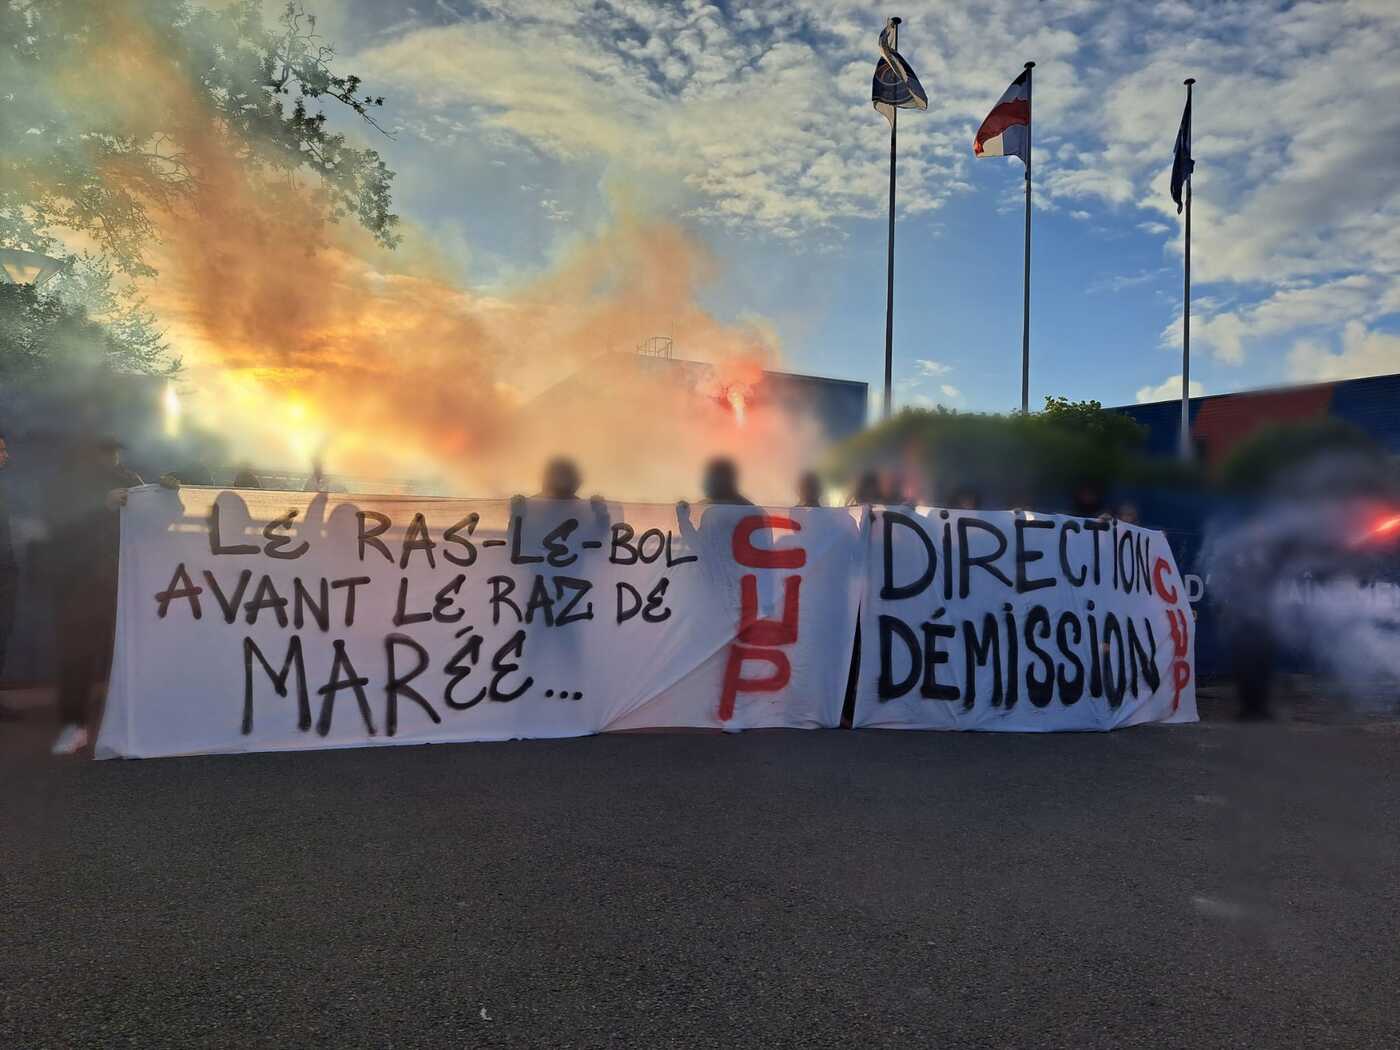 LE RAS-LE-BOL
AVANT LE RAZ DE
MARÉE...
CUP
DIRECTION
DÉMISSION
CUP